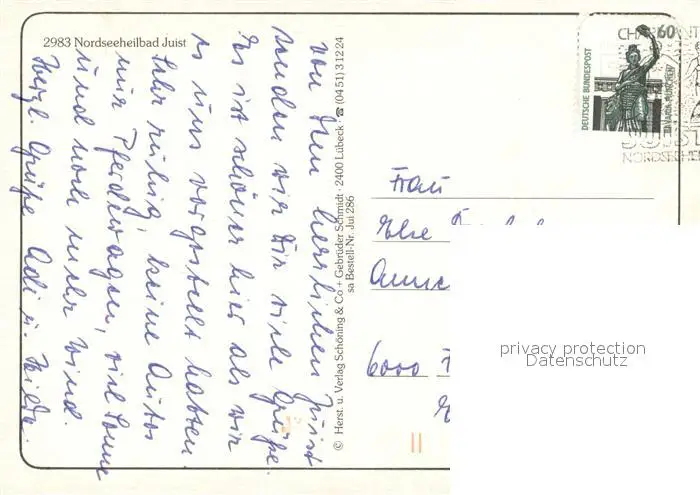 2983 Nordseeheilbad Juist
von dem herrlichen Juist
senden wir Dir viele Grüße
Es ist schöner hier als wir
es uns vorgestellt hatten.
Sehr ruhig, keine Autos
nur Pferdewagen, viel Sonne
und noch mehr Wind.
Herzl. Grüße Adi u. Hilde.
© Herst. u. Verlag Schöning & Co + Gebrüder Schmidt · 2400 Lübeck · ☎ (0451) 31224
sa Bestell-Nr. Jui 286
DEUTSCHE BUNDESPOST
60
BAVARIA MÜNCHEN
JUIST
Frau
Else
6000
privacy protection
Datenschutz